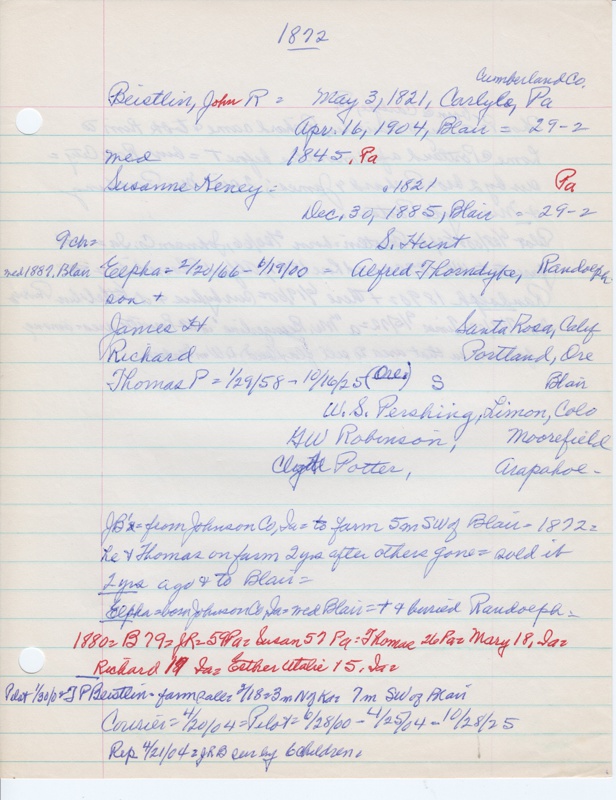 1872
Cumberland Co.
Beistlin, John R = May 3, 1821, Carlyle, Pa
Apr. 16, 1904, Blair = 29-2
med 1845, Pa
Susanne Keney = . 1821 Pa
Dec, 30, 1885, Blair = 29-2
9 ch = S. Hunt
med 1887, Blair Eelpha = 2/20/66 - 6/19/00 = Alfred Thorndyke, Randolph
son +
James H Santa Rosa, Calif
Richard Portland, Ore
Thomas P = 1/29/58 - 10/16/25 (Ore.) S Blair
W. S. Pershing, Limon, Colo
GW Robinson, Moorefield
Clyde Potter, Arapahoe -
JB's = from Johnson Co, Ia = to farm 5 m SW of Blair - 1872 =
he & Thomas on farm 2 yrs after others gone = sold it
2 yrs ago & to Blair =
Eelpha = born Johnson Co, Ia = med Blair = + & buried Randolph =
1880 = B 79 = JR = 59 Pa = Susan 57 Pa = Thomas 26 Pa = Mary 18, Ia =
Richard 17 Ia = Esther 15, Ia =
Pilot 1/30/0 & J P Beistlin - farm sale = 2/18 = 3 m N of Ka = 7 m SW of Blair
Courier = 4/20/04 = Pilot = 6/28/00 - 4/25/04 - 10/28/25
Rep 4/21/04 = JRB sur by 6 children.